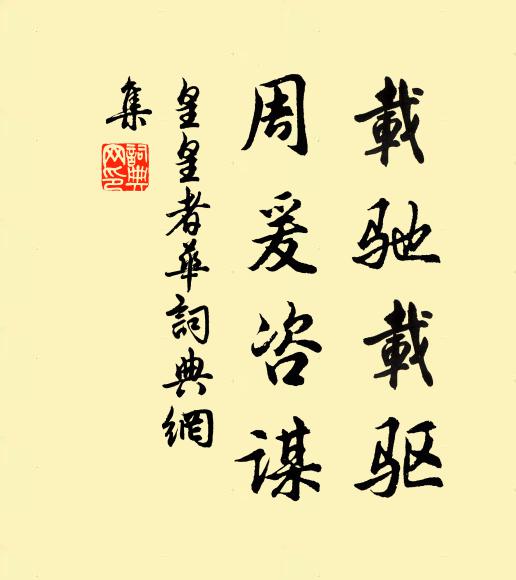 載驰載驱
周爰咨谋
皇皇者華詞典網
集
詞典網印